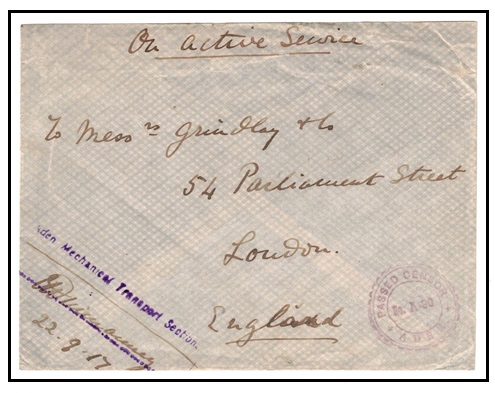 On Active Service
To Messrs Grindlay & Co
54 Parliament Street
London.
England
Aden Mechanical Transport Section.
22.9.17
PASSED CENSOR
No. A.20